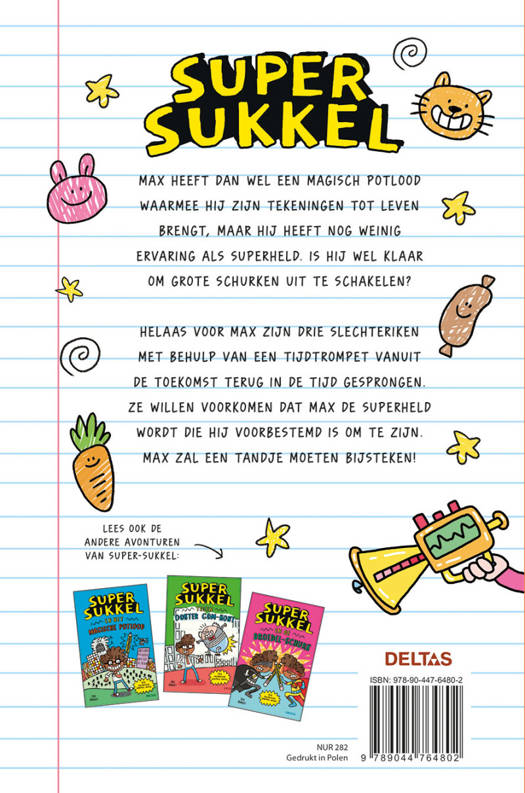 SUPER
SUKKEL
MAX HEEFT DAN WEL EEN MAGISCH POTLOOD
WAARMEE HIJ ZIJN TEKENINGEN TOT LEVEN
BRENGT, MAAR HIJ HEEFT NOG WEINIG
ERVARING ALS SUPERHELD. IS HIJ WEL KLAAR
OM GROTE SCHURKEN UIT TE SCHAKELEN?
HELAAS VOOR MAX ZIJN DRIE SLECHTERIKEN
MET BEHULP VAN EEN TIJDTROMPET VANUIT
DE TOEKOMST TERUG IN DE TIJD GESPRONGEN.
ZE WILLEN VOORKOMEN DAT MAX DE SUPERHELD
WORDT DIE HIJ VOORBESTEMD IS OM TE ZIJN.
MAX ZAL EEN TANDJE MOETEN BIJSTEKEN!
LEES OOK DE
ANDERE AVONTUREN
VAN SUPER-SUKKEL:
SUPER
SUKKEL
EN HET
MAGISCHE POTLOOD
SUPER
SUKKEL
TEGEN
DOKTER GOM-BORT
SUPER
SUKKEL
EN DE
SCHURK
DELTAS
ISBN: 978-90-447-6480-2
9 789044 764802
NUR 282
Gedrukt in Polen